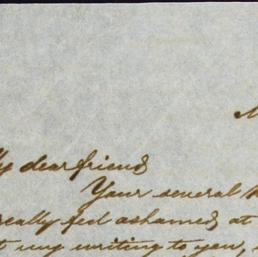 My dear friend
Your several
really feel ashamed at
my writing to you,